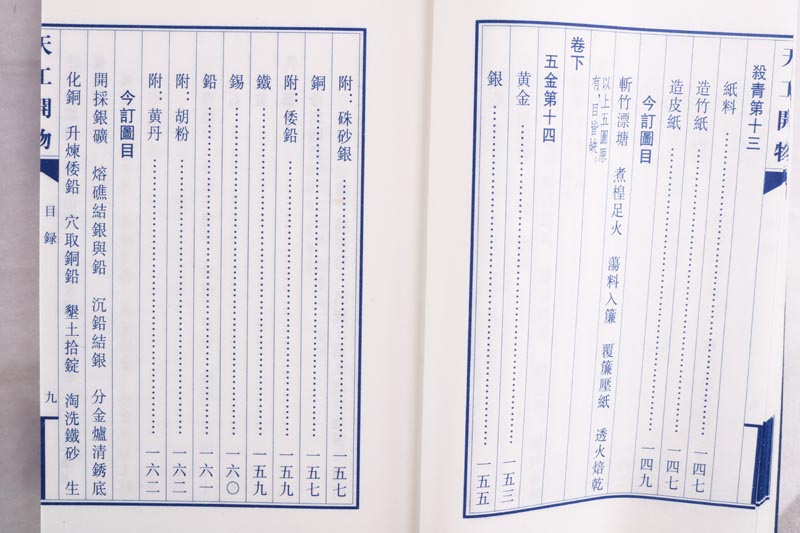 天工開物
殺青第十三
紙料……一四七
造竹紙……一四七
造皮紙……一四九
今訂圖目
斬竹漂塘 煮楻足火 蕩料入簾 覆簾壓紙 透火焙乾
以上五圖原
有，目皆缺。
卷下
五金第十四
黄金……一五三
銀……一五五
附：硃砂銀……一五七
銅……一五七
附：倭鉛……一五九
鐵……一五九
錫……一六〇
鉛……一六一
附：胡粉……一六二
附：黄丹……一六二
今訂圖目
開採銀礦 熔礁結銀與鉛 沉鉛結銀 分金爐清銹底
化銅 升煉倭鉛 穴取銅鉛 墾土拾錠 淘洗鐵砂 生
天工開物
目録
九